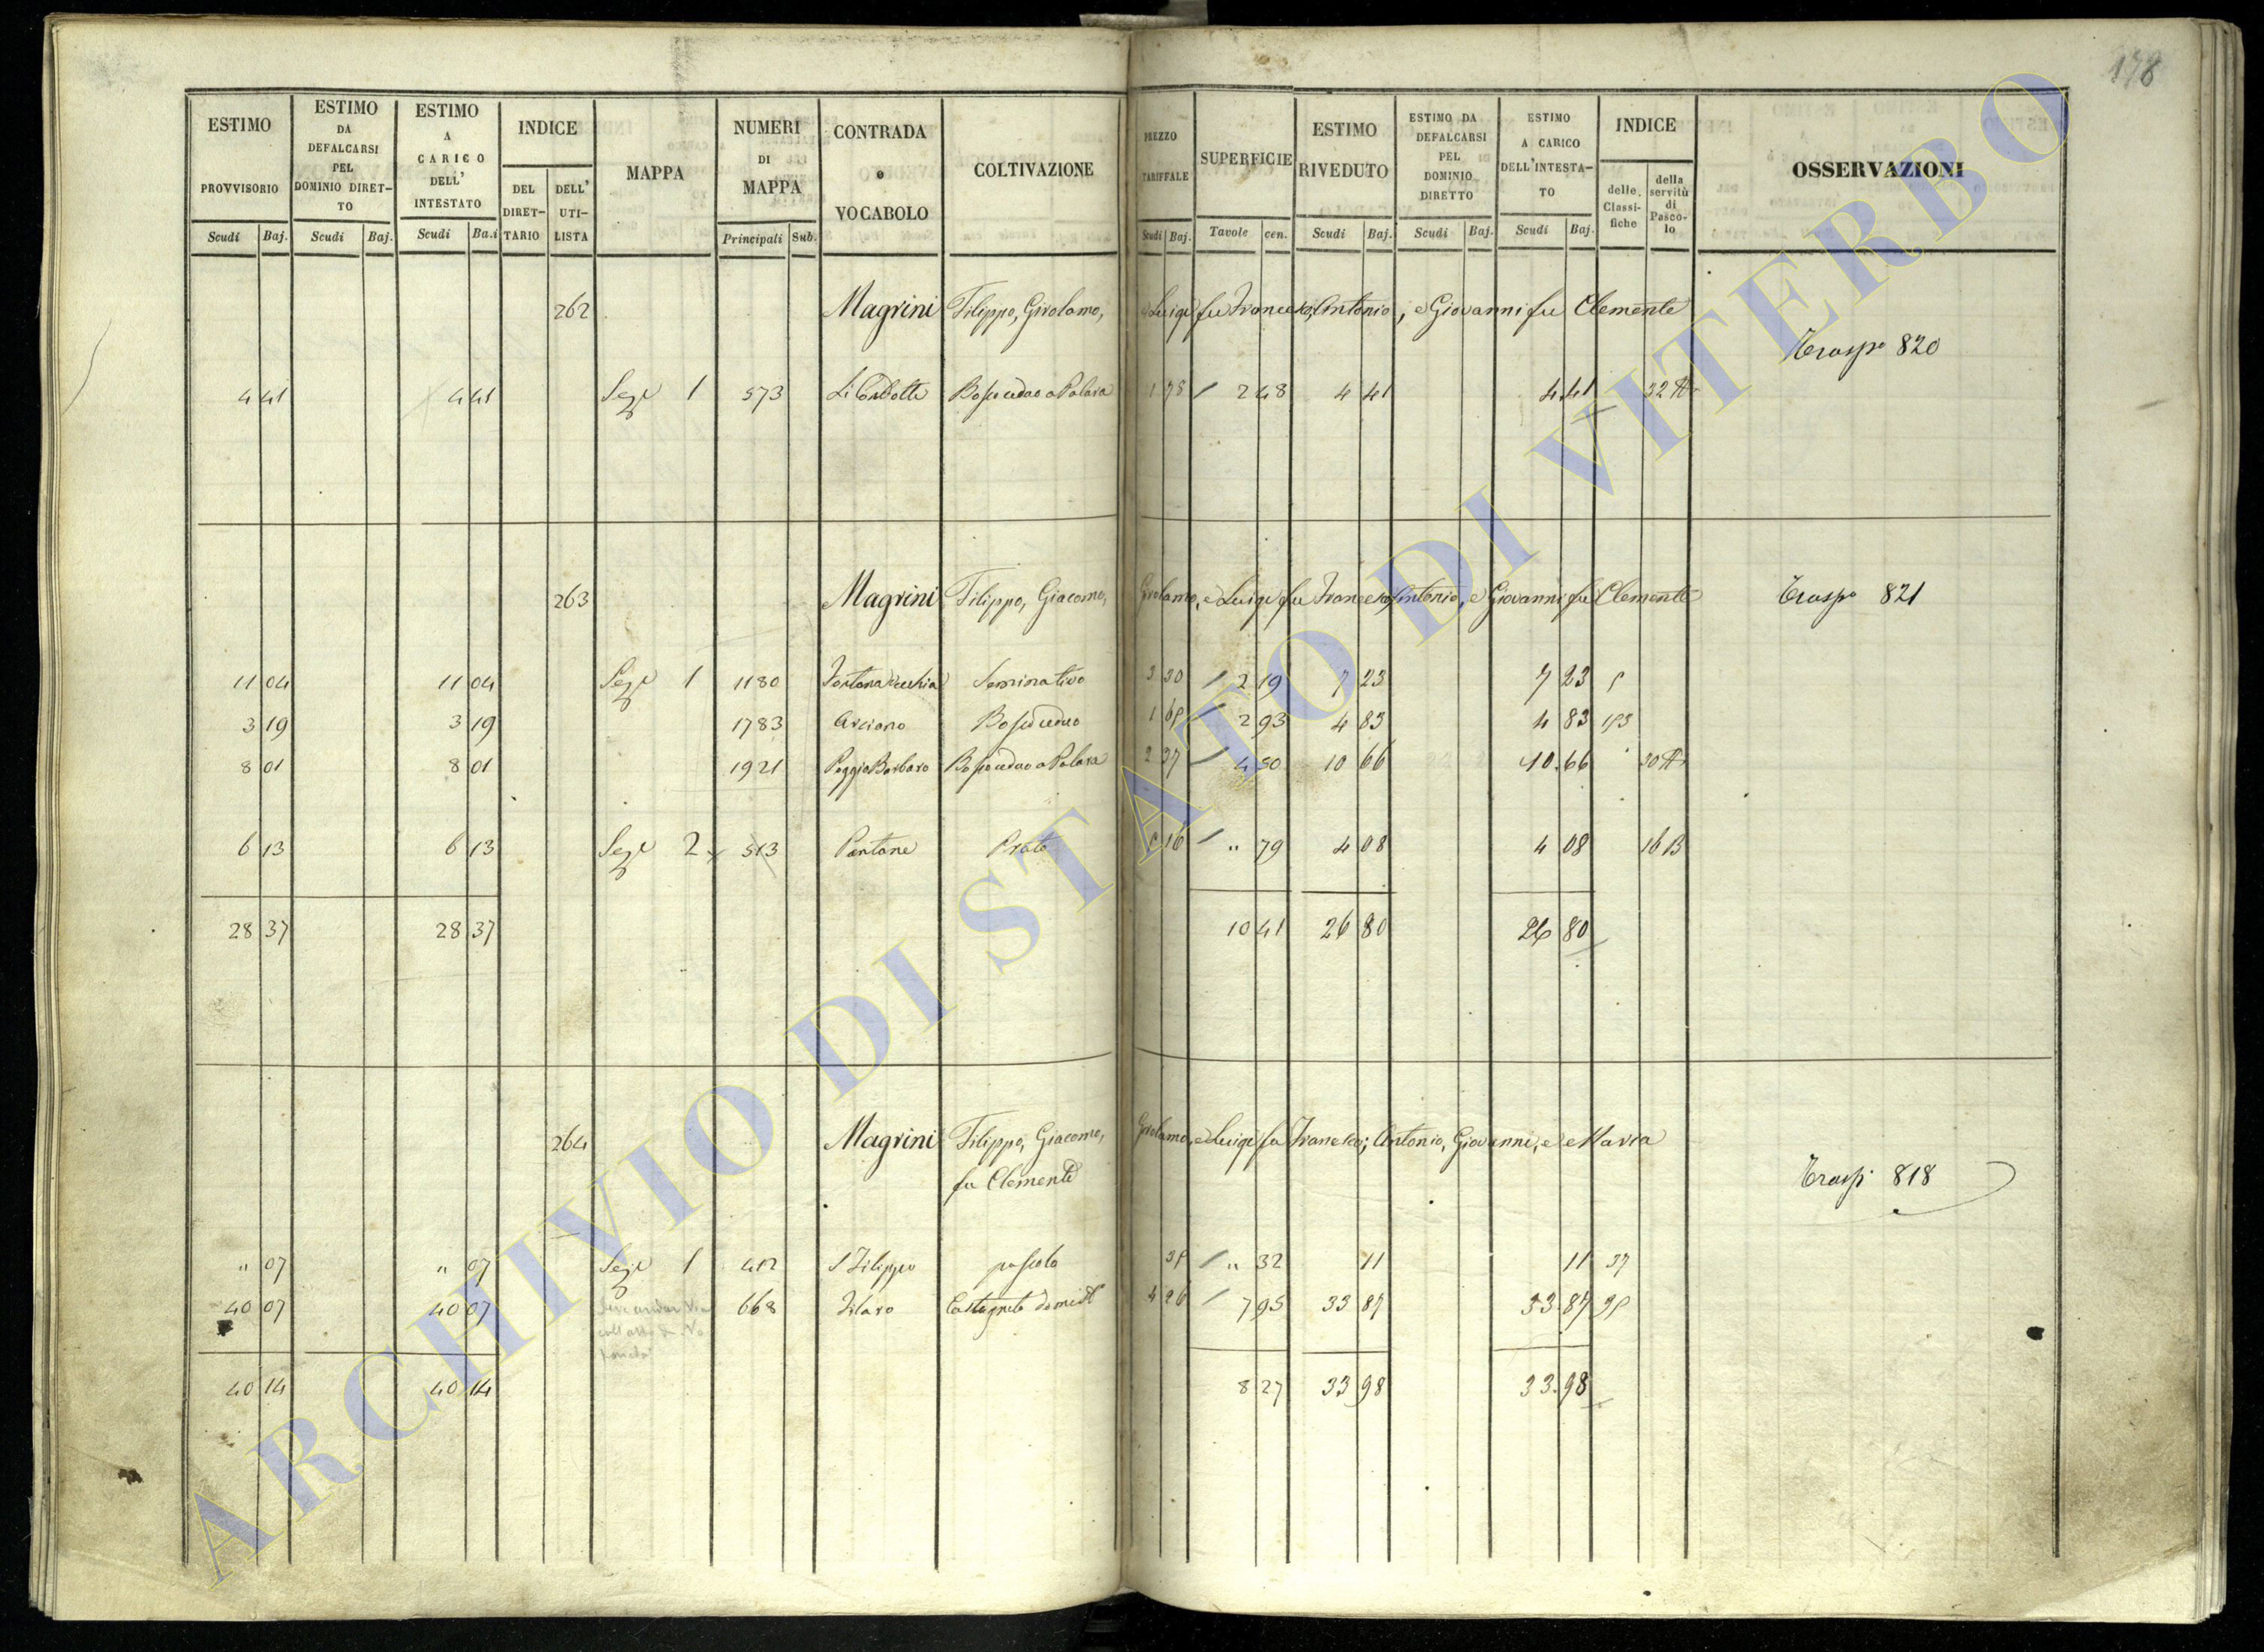 178
ESTIMO PROVVISORIO Scudi Baj.
ESTIMO DA DEFALCARSI PEL DOMINIO DIRET- TO Scudi Baj.
ESTIMO A CARICO DELL' INTESTATO Scudi Ba.i
INDICE DEL DIRET- TARIO DELL' UTI- LISTA
MAPPA
NUMERI DI MAPPA Principali Sub.
CONTRADA o VOCABOLO
COLTIVAZIONE
PREZZO TARIFFALE Scudi Baj.
SUPERFICIE Tavole cen.
ESTIMO RIVEDUTO Scudi Baj.
ESTIMO DA DEFALCARSI PEL DOMINIO DIRETTO Scudi Baj.
ESTIMO A CARICO DELL'INTESTA- TO Scudi Baj.
INDICE delle Classi- fiche della servitù di Pasco- lo
OSSERVAZIONI
262 Magrini Filippo, Girolamo, e Luigi fu Francesco, Antonio, e Giovanni fu Clemente
Traspo 820
4 41 4 41 Sez.e 1 573 Bosco ceduo a Palara 1 78 2 48 4 41 4 41 32
263 Magrini Filippo, Giacomo, Girolamo, e Luigi fu Francesco, Antonio, e Giovanni fu Clemente Traspo 821
11 04 11 04 Sez.e 1 1180 Fontana Vecchia Seminativo 3 30 2 19 7 23 7 23 5
3 19 3 19 1783 Arciano Bosco ceduo 1 65 2 93 4 83 4 83 153
8 01 8 01 1921 Poggio Barbaro Bosco ceduo a Palara 2 37 4 50 10 66 10 66 30
6 13 6 13 Sez.e 2 513 Pantane Prato 5 16 " 79 4 08 4 08 16 B
28 37 28 37 10 41 26 80 26 80
264 Magrini Filippo, Giacomo, Girolamo, e Luigi fu Francesco; Antonio, Giovanni, e Maria
fu Clemente
Trasp 818
" 07 " 07 Sez.e 1 412 S Filippo pascolo 35 " 32 11 11 37
40 07 40 07 668 Filaro Castagneto domest.o 4 26 7 95 33 87 33 87 95
40 14 40 14 8 27 33 98 33 98
ARCHIVIO DI STATO DI VITERBO